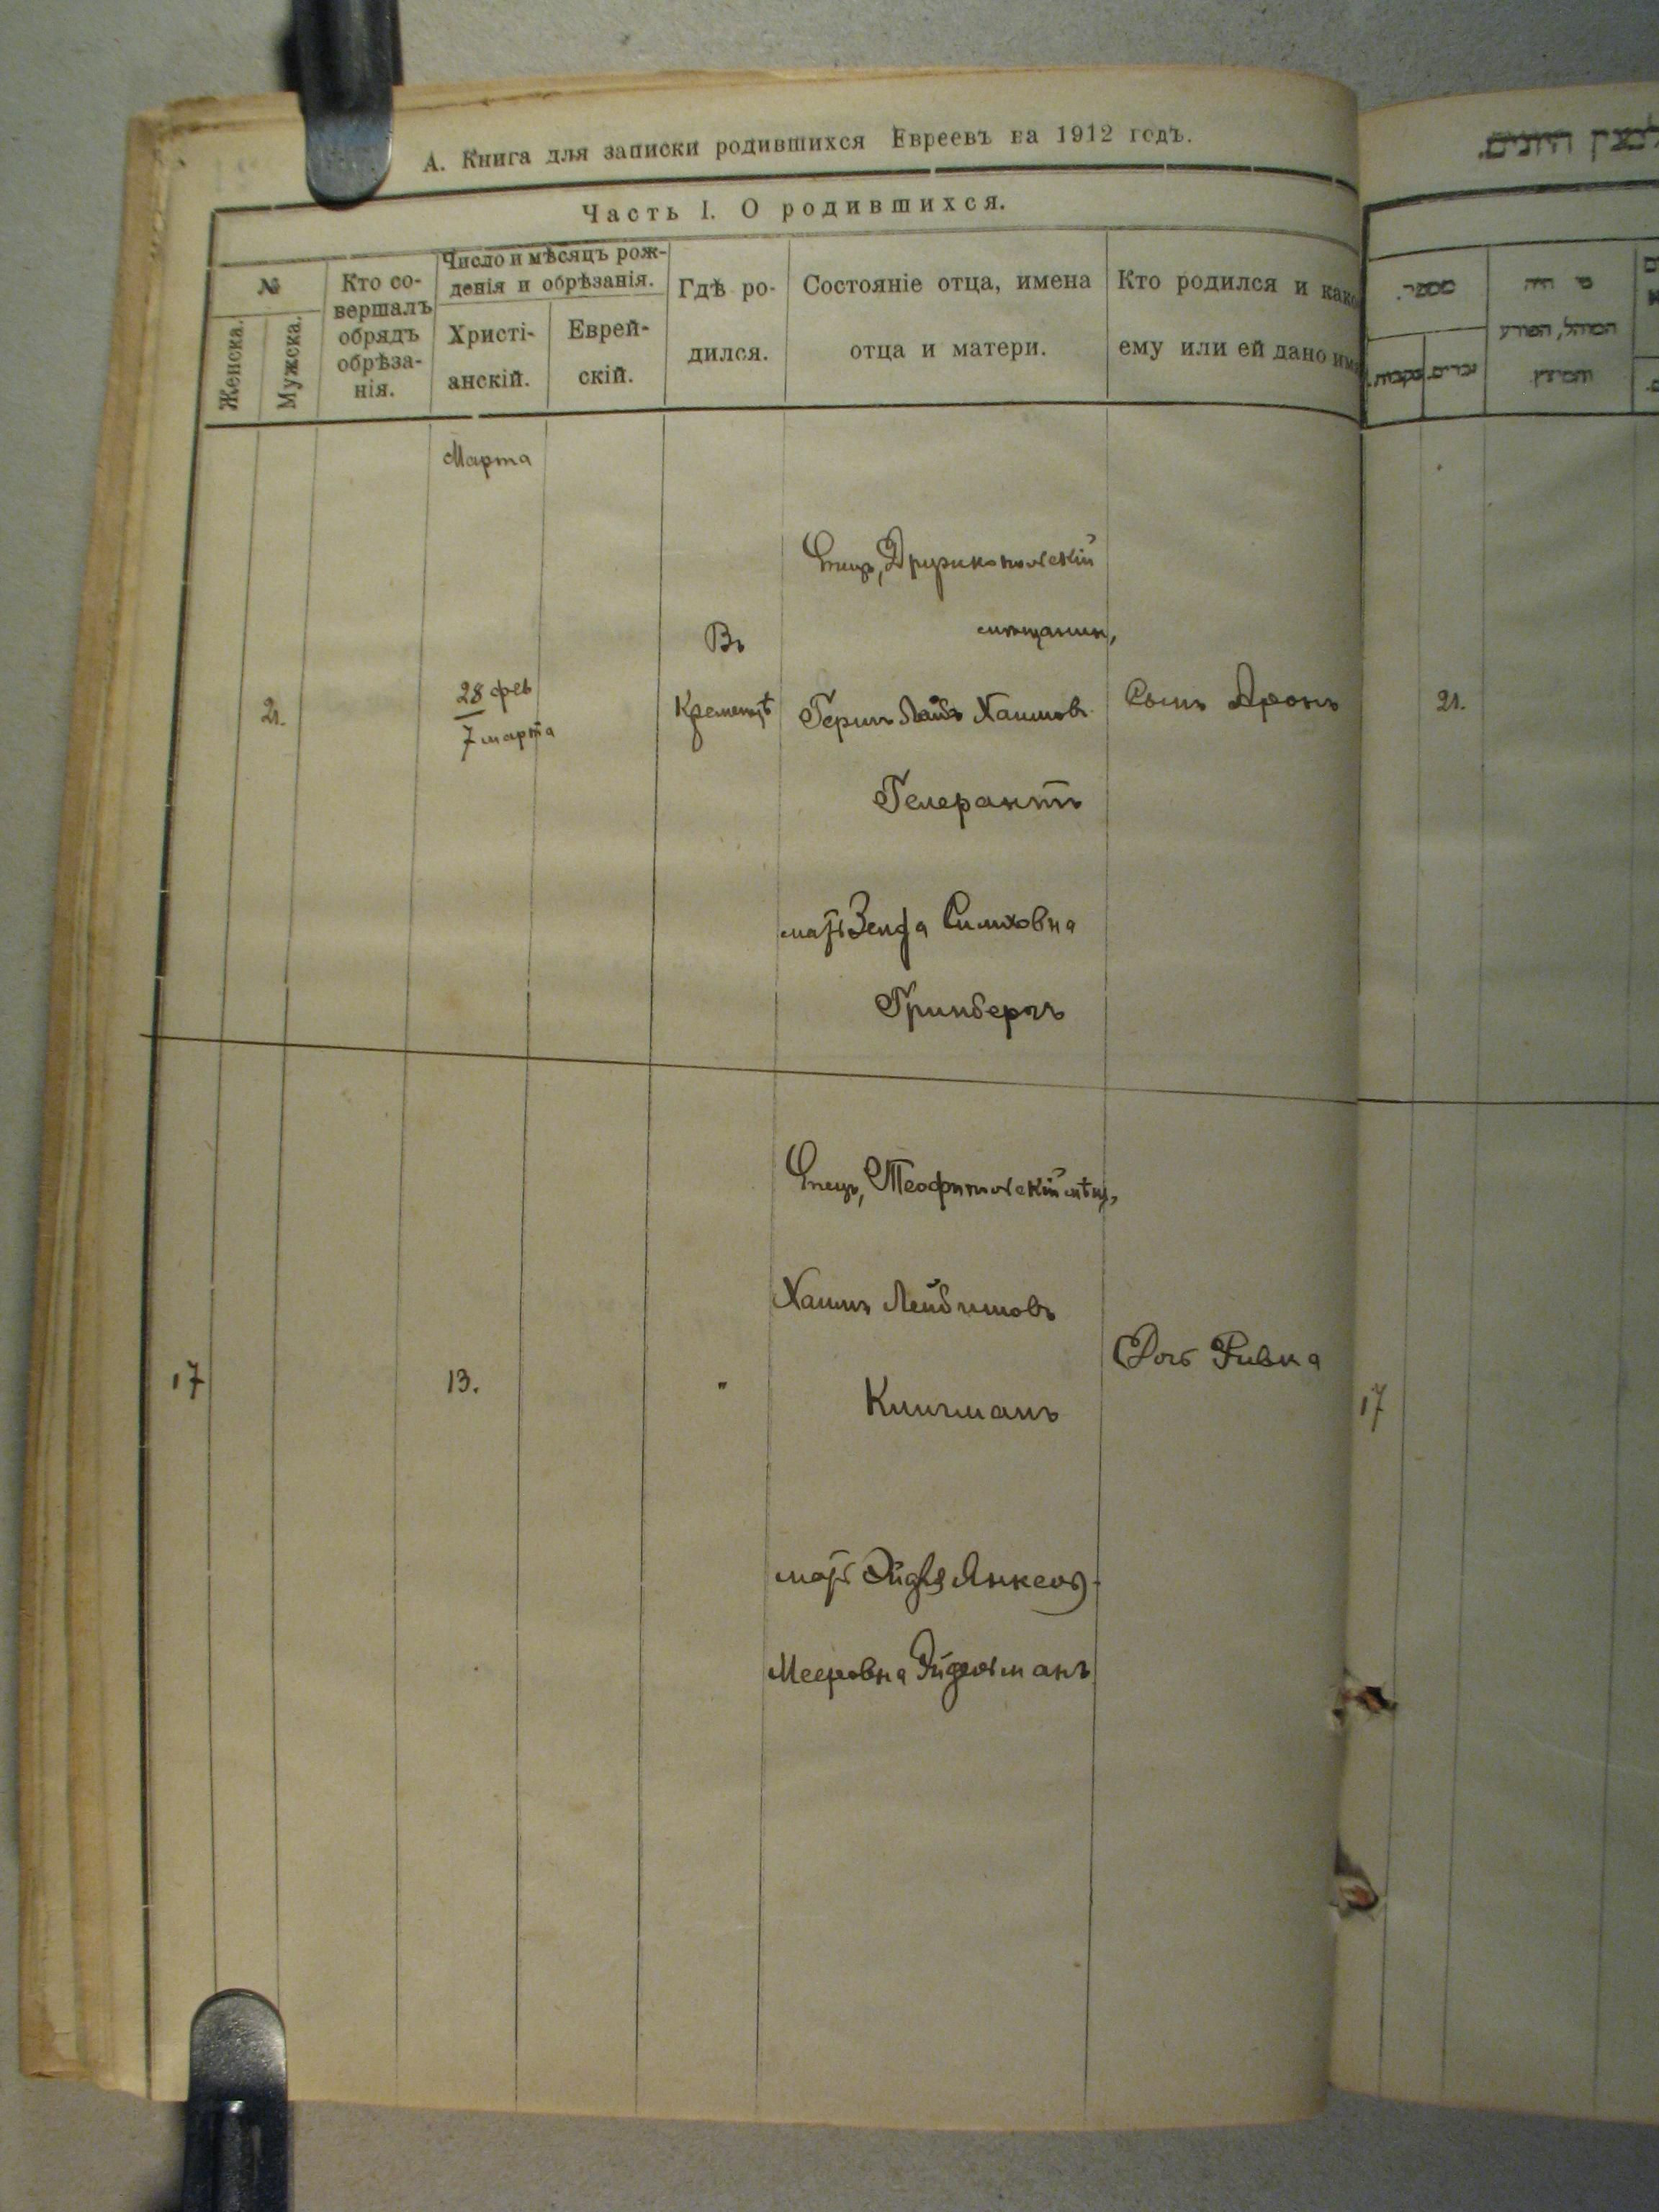 А. Книга для записки родившихся Евреевъ на 1912 годъ.
Часть I. О родившихся.
№
Женска.
Мужска.
Кто со-
вершалъ
обрядъ
обрѣза-
нія.
Число и мѣсяцъ рож-
денія и обрѣзанія.
Христі-
анскій.
Еврей-
скій.
Гдѣ ро-
дился.
Состояніе отца, имена
отца и матери.
Кто родился и како
ему или ей дано имя
Марта
21.
28 фев
7 марта
Въ
Кременцѣ
Отецъ, Дружкопольскій
мѣщанин,
Герш Лейб Хаимовъ
Гелерантъ
мать Зелда Симховна
Гринбергъ
Сынъ Аронъ
17
13.
"
Отецъ, Теофипольскій мѣщ,
Хаимъ Лейбишовъ
Клигманъ
мать Эйдля Янкелев
Мееровна Эйдельманъ
Дочь Ривка
מספר.
נקבות.
זכרים.
מי היה
המוהל, הפורע
והמוצץ.
21.
17